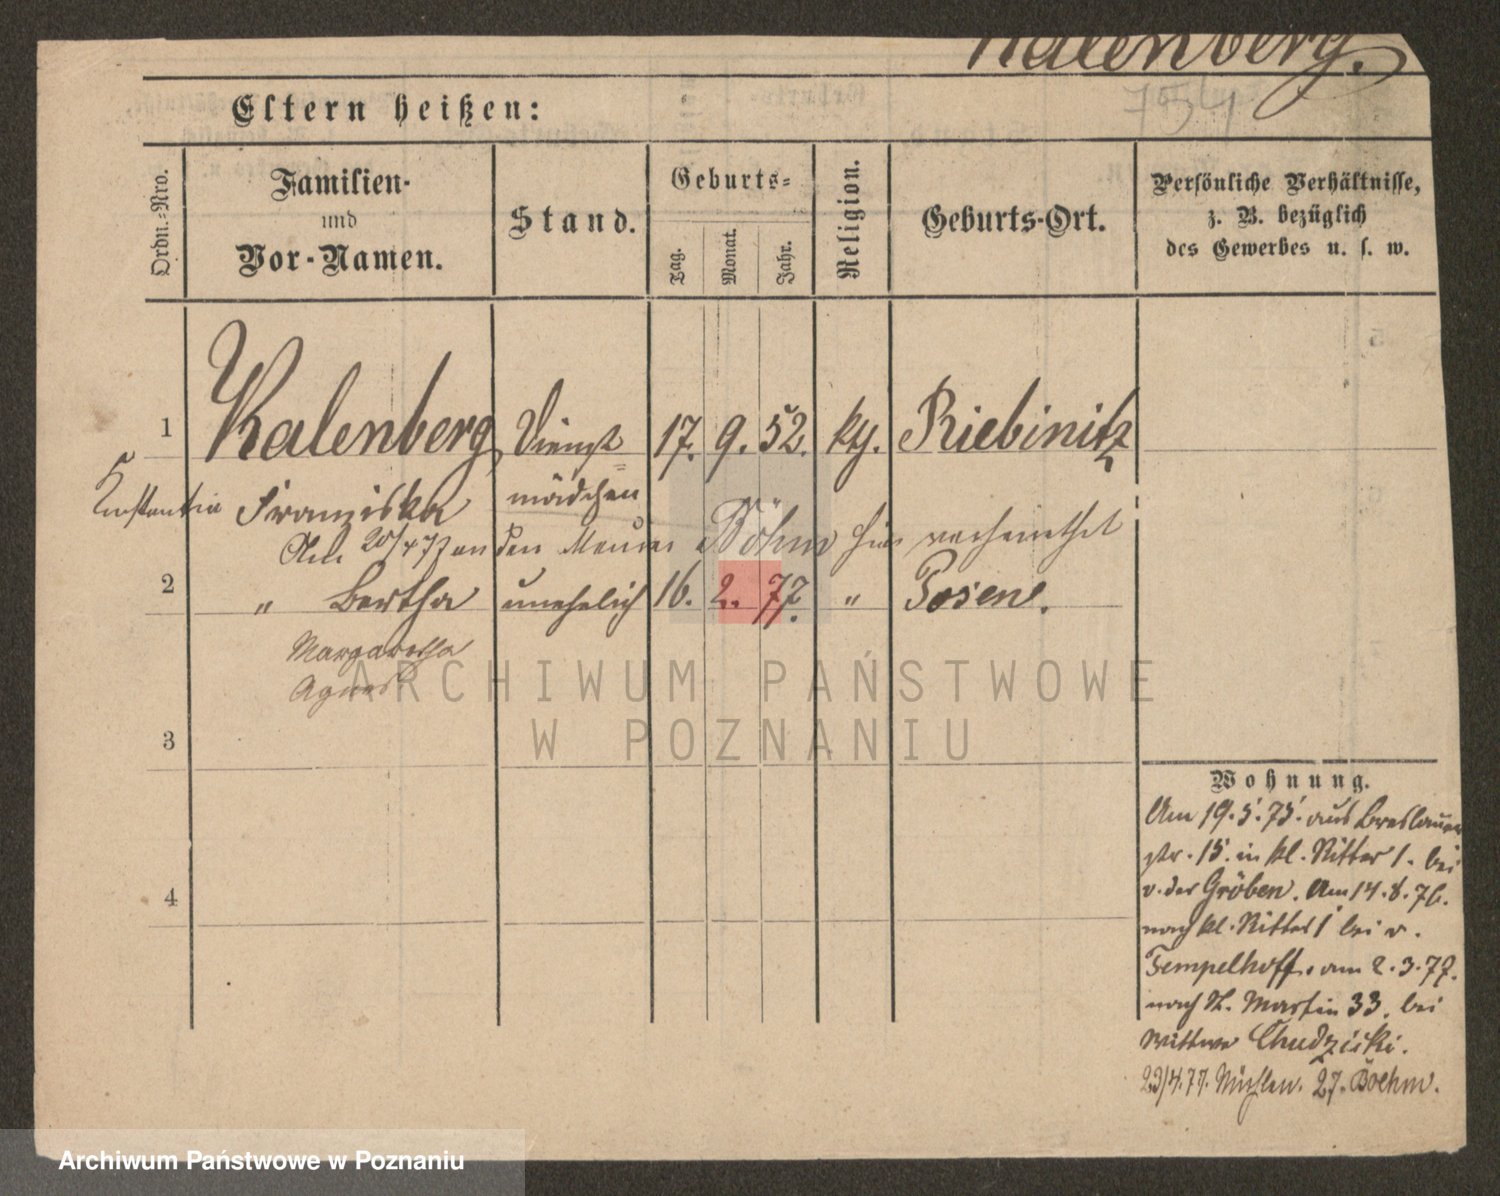 Kalenberg.
Eltern heißen:
Ordn.-Nro.
Familien-
und
Vor-Namen.
Stand.
Geburts-
Tag.
Monat.
Jahr.
Religion.
Geburts-Ort.
Persönliche Verhältnisse,
z. B. bezüglich
des Gewerbes u. s. w.
1 Kalenberg Dienst= 17. 9. 52. kth. Riebinitz
Konstantia Franziska mädchen
Am 20/4 77 an den Maurer Böhm hier verheirathet
2 " Bertha unehelich 16. 2. 77. " Posen.
Margaretha
Agnes
3
4
Wohnung.
Am 19.5.75. aus Breslauer
str. 15. in kl. Ritter 1. bei
v. der Gröben. Am 14.8.76.
nach kl. Ritter 1 bei v.
Tempelhoff. am 2.3.77.
nach St. Martin 33. bei
Wittwe Chudziski.
23/4.77. Mühlen. 27. Boehm.
ARCHIWUM PAŃSTWOWE
W POZNANIU
Archiwum Państwowe w Poznaniu